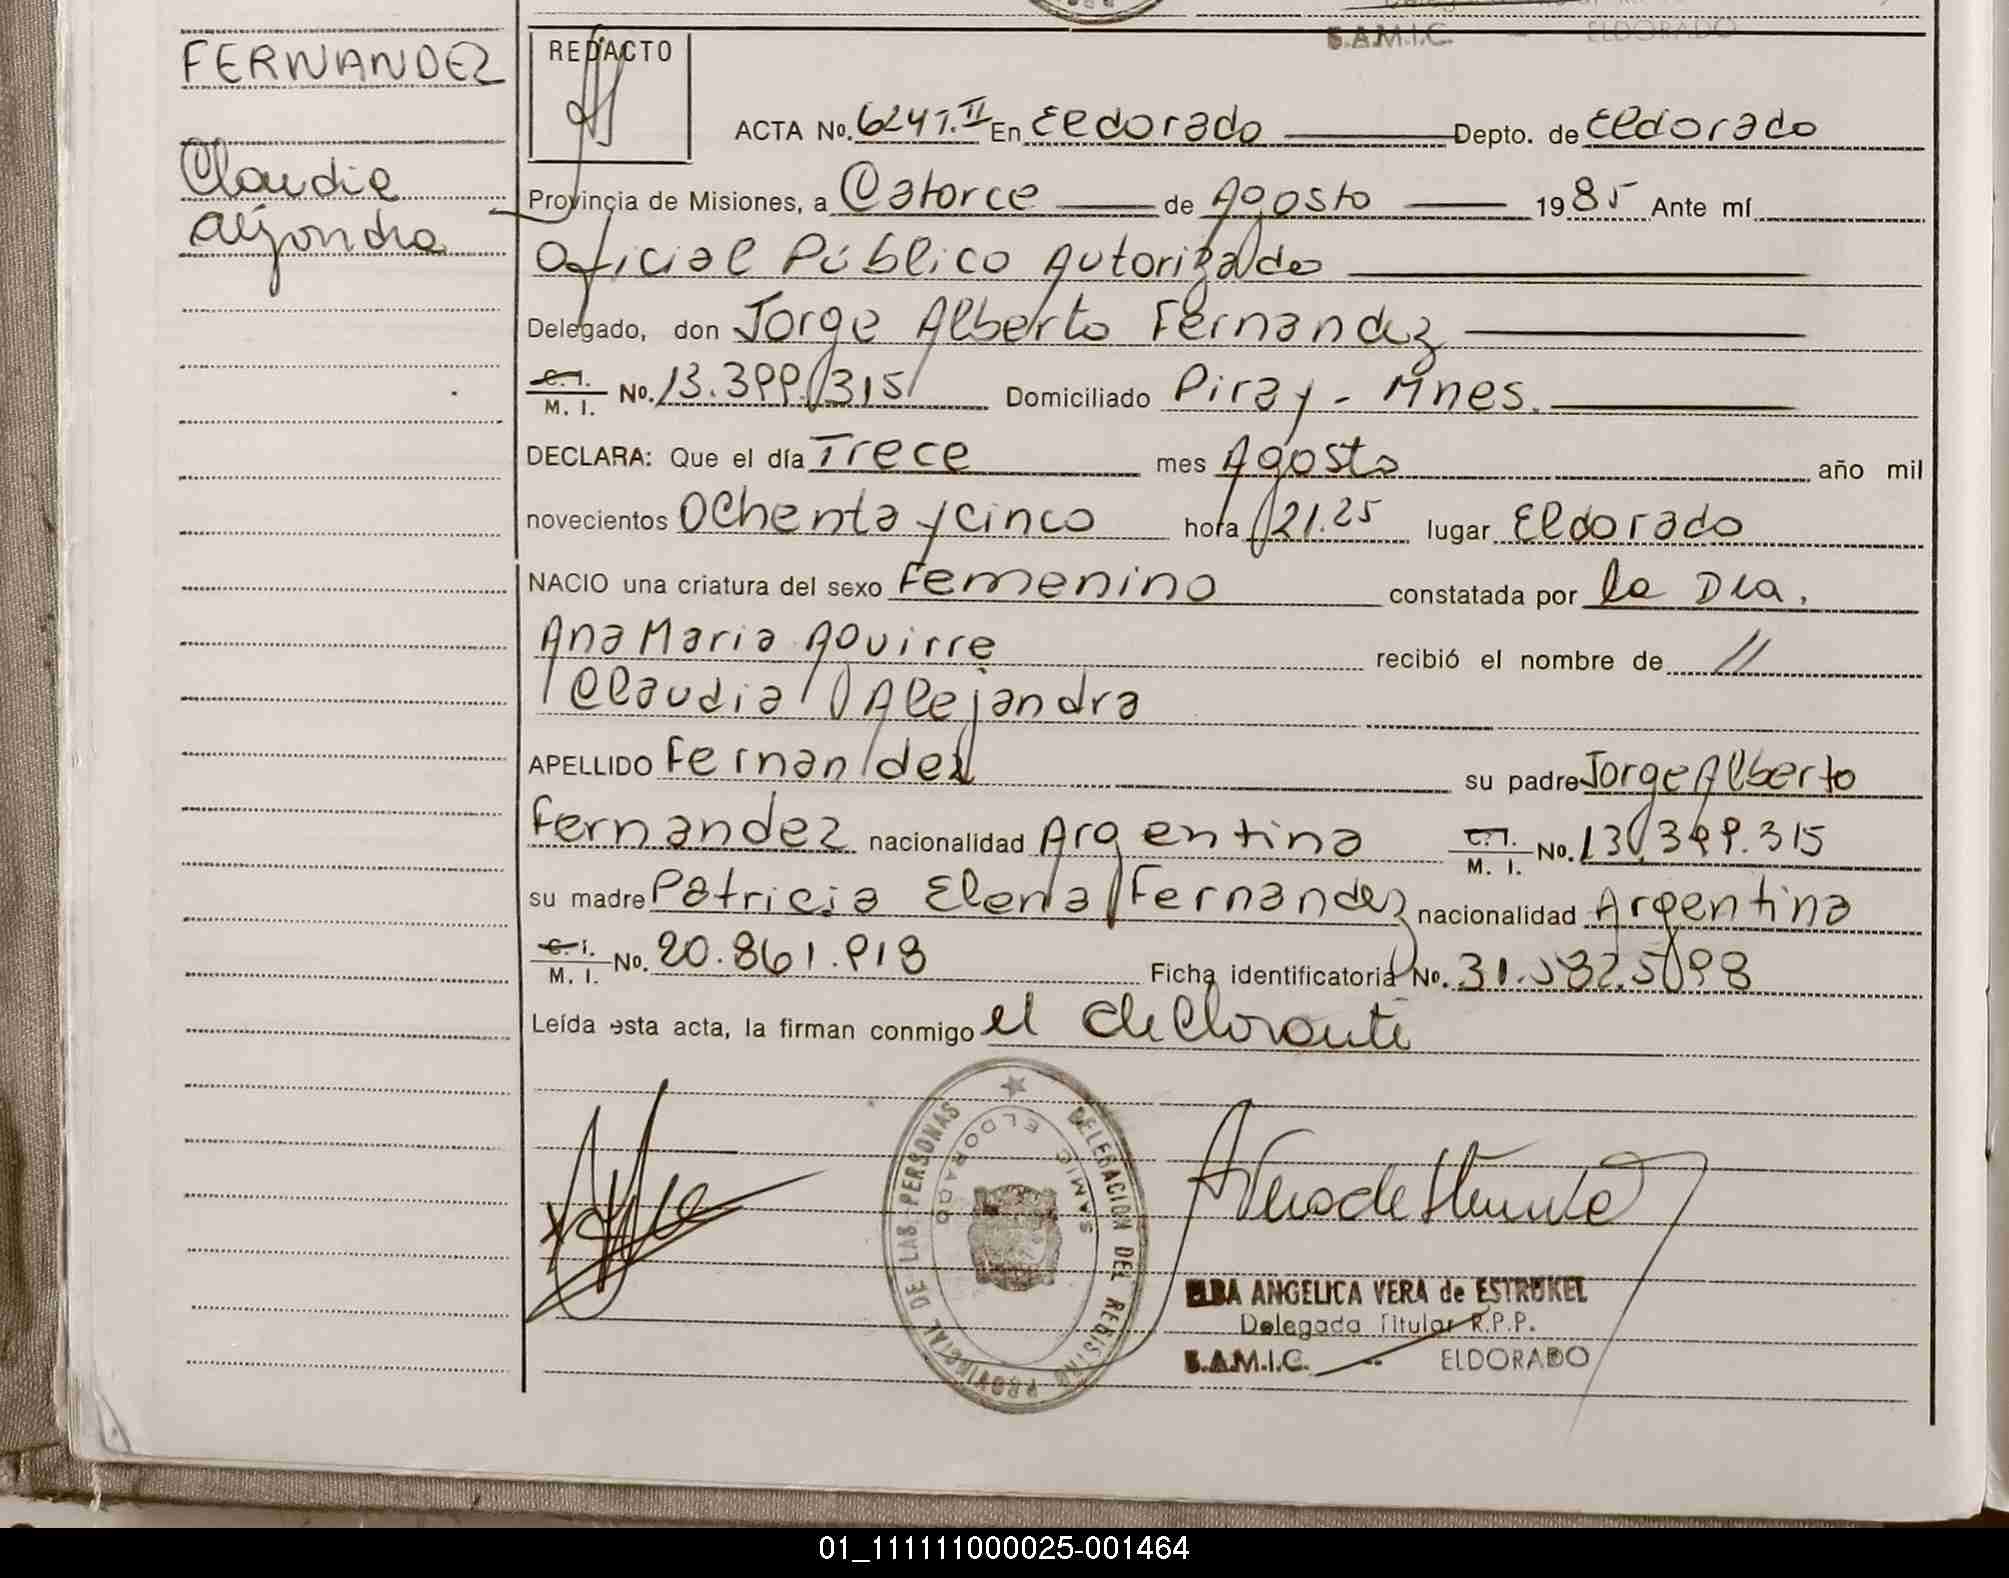 S.A.M.I.C. - ELDORADO
FERNANDEZ
Claudia
Alejandra
REDACTO
ACTA No. 6241.II En Eldorado Depto. de Eldorado
Provincia de Misiones, a Catorce de Agosto 1985 Ante mí
Oficial Público Autorizado
Delegado, don Jorge Alberto Fernandez
C. I. M. I. No. 13.399.315 Domiciliado Piray - Mnes.
DECLARA: Que el día Trece mes Agosto año mil
novecientos Ochenta y cinco hora 21.25 lugar Eldorado
NACIO una criatura del sexo Femenino constatada por la Dra.
Ana Maria Aguirre recibió el nombre de //
Claudia Alejandra
APELLIDO Fernandez su padre Jorge Alberto
Fernandez nacionalidad Argentina C. I. M. I. No. 13.399.315
su madre Patricia Elena Fernandez nacionalidad Argentina
C. I. M. I. No. 20.861.918 Ficha identificatoria No.
Leída esta acta, la firman conmigo el declarante
DELEGACION DEL REGISTRO PROVINCIAL DE LAS PERSONAS
SAMIC ELDORADO
ELBA ANGELICA VERA de ESTRUKEL
Delegada Titular R.P.P.
S.A.M.I.C. -- ELDORADO
01_111111000025-001464